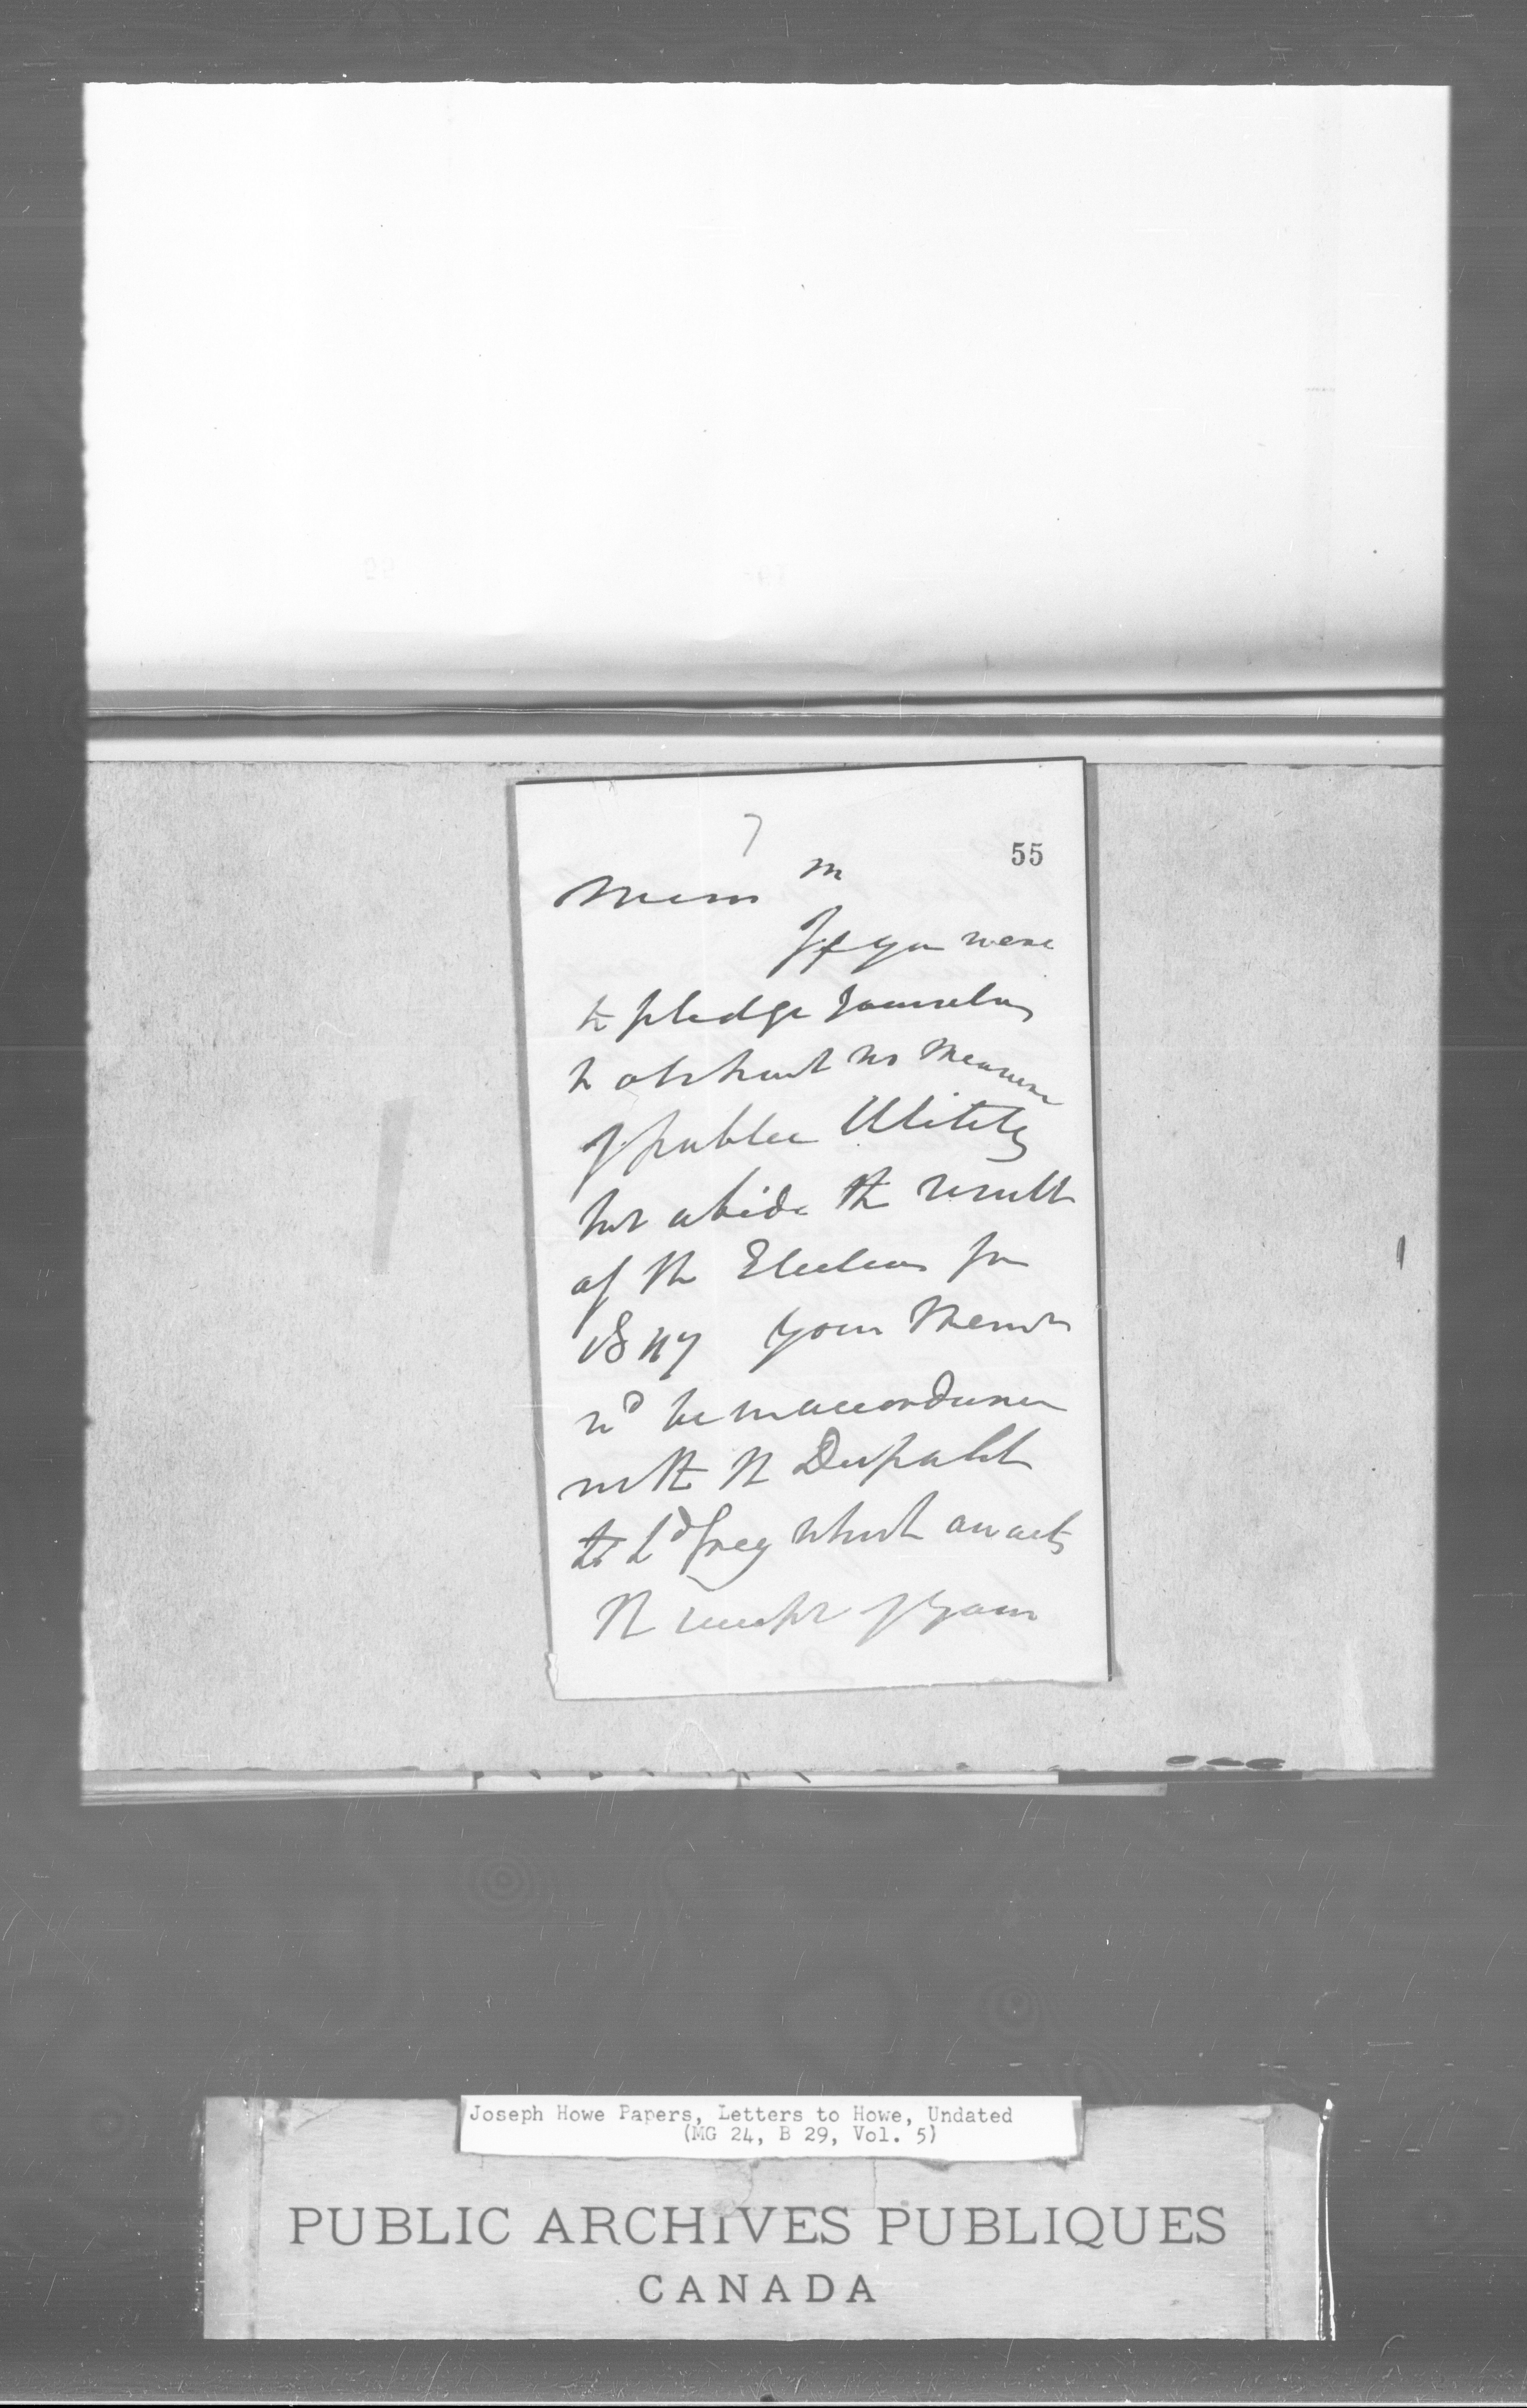 7
55
Mem^m
If you were
to pledge yourselves
to obstruct no Measure
of public Utility
but abide the result
of the Elections for
your
w^d be in accordance
with the Despatch
to L^d Grey which awaits
the receipt of your
Joseph Howe Papers, Letters to Howe, Undated
(MG 24, B 29, Vol. 5)
PUBLIC ARCHIVES PUBLIQUES
CANADA